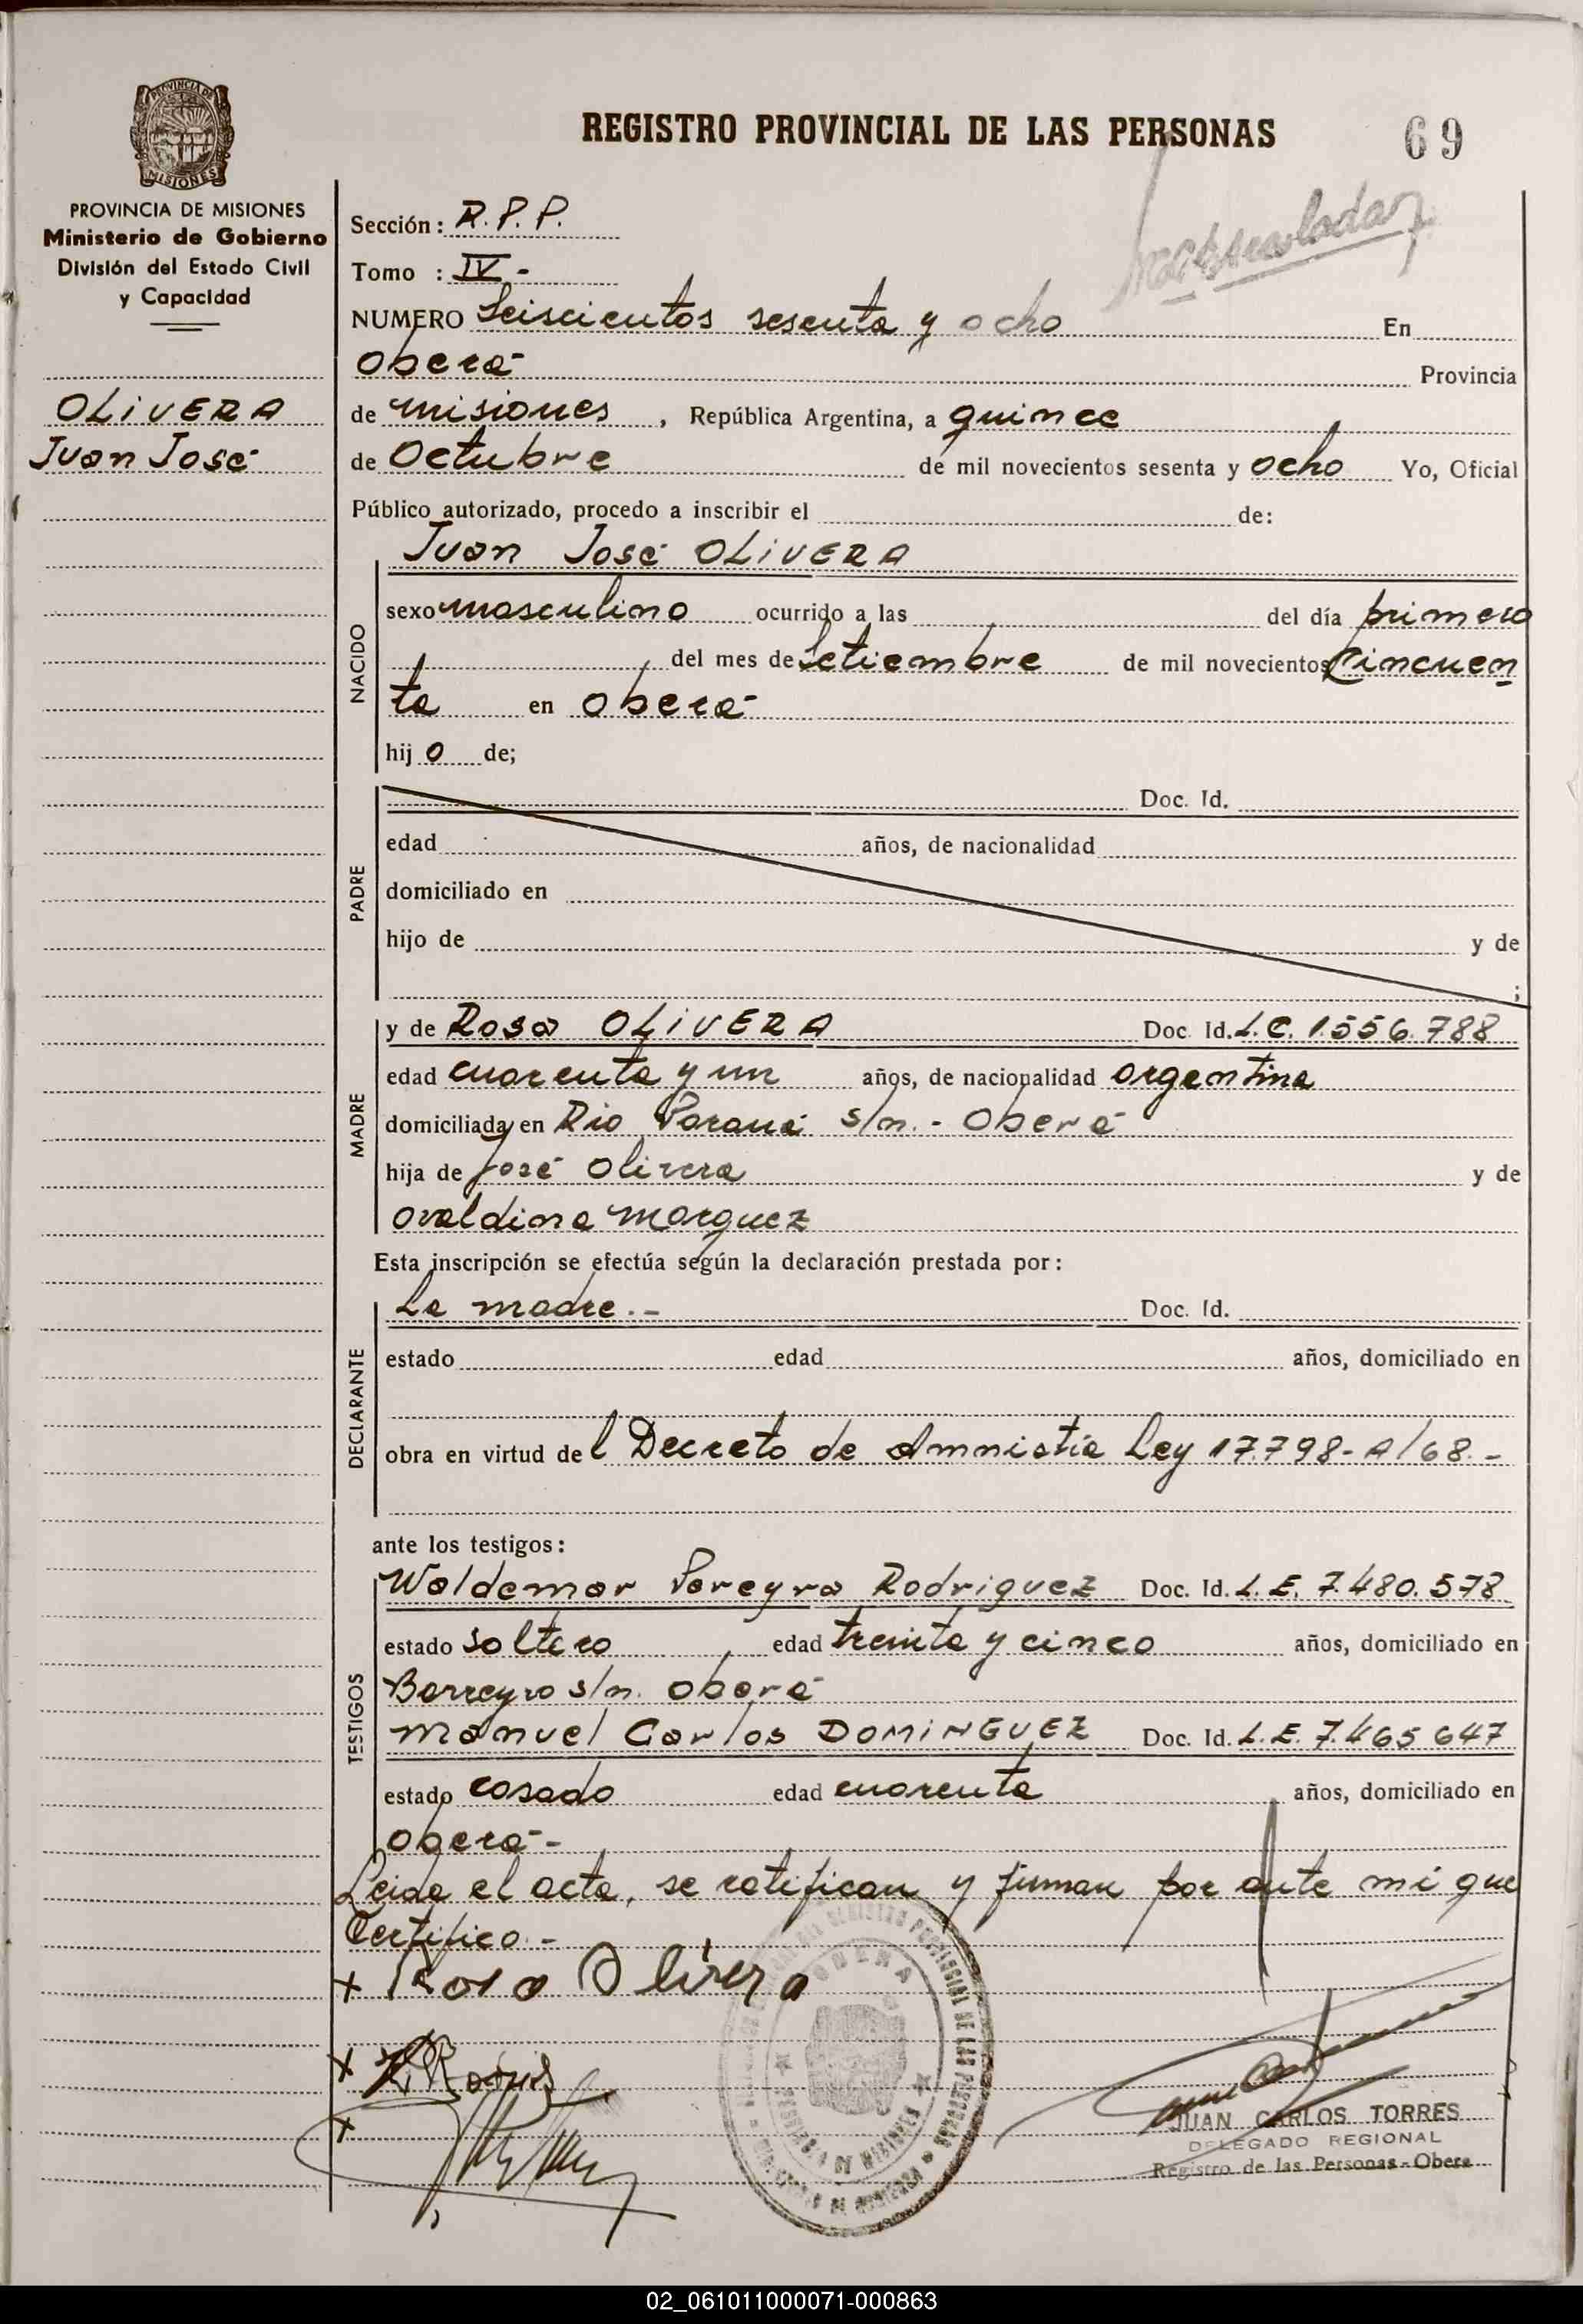 REGISTRO PROVINCIAL DE LAS PERSONAS
69
PROVINCIA DE MISIONES
PROVINCIA DE MISIONES
Ministerio de Gobierno
División del Estado Civil
y Capacidad
OLIVERA
Juan José
Sección: R.P.P.
Tomo : IV-
NUMERO Seiscientos sesenta y ocho En
Oberá
Provincia
de Misiones, República Argentina, a quince
de Octubre de mil novecientos sesenta y ocho Yo, Oficial
Público autorizado, procedo a inscribir el de:
Juan José OLIVERA
NACIDO
sexo masculino ocurrido a las del día primero
del mes de Setiembre de mil novecientos Cincuen
ta en Oberá
hij o de;
PADRE
Doc. Id.
edad años, de nacionalidad
domiciliado en
hijo de y de
;
MADRE
y de Rosa OLIVERA Doc. Id. L.C. 1.556.788
edad cuarenta y un años, de nacionalidad argentina
domiciliada en Rio Paraná s/n.- Oberá
hija de José Olivera y de
Ovaldina Marquez
Esta inscripción se efectúa según la declaración prestada por:
DECLARANTE
La madre.- Doc. Id.
estado edad años, domiciliado en
obra en virtud del Decreto de Amnistía Ley 17.798-A/68.-
ante los testigos:
TESTIGOS
Waldemar Pereyra Rodriguez Doc. Id. L.E. 7.480.578
estado soltero edad treinta y cinco años, domiciliado en
Barreyro s/n. Oberá
Manuel Carlos DOMINGUEZ Doc. Id. L.E. 7.465.647
estado casado edad cuarenta años, domiciliado en
Oberá-
Leida el acta, se ratifican y firman por ante mi que
Certifico.-
x Rosa Olivera
x
x
OBERA
JUAN CARLOS TORRES
DELEGADO REGIONAL
Registro de las Personas - Obera
02_061011000071-000863